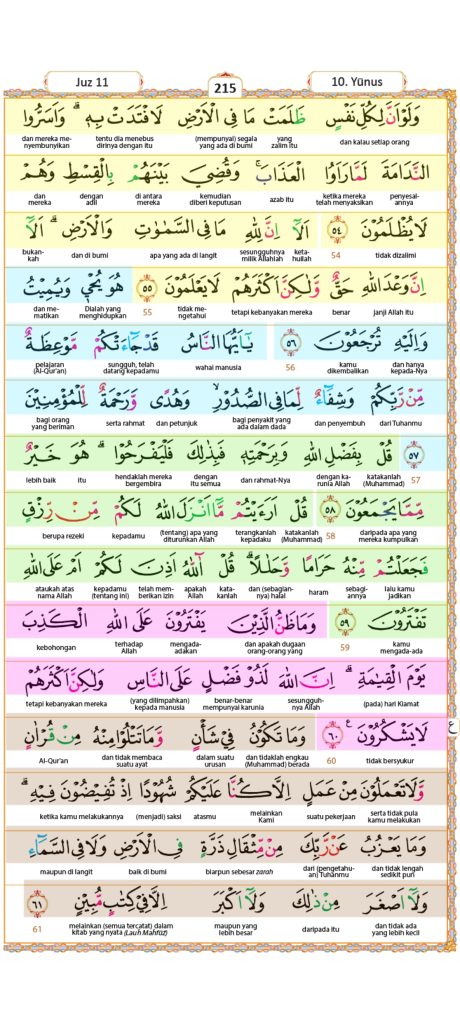 Juz 11
215
10. Yūnus
وَلَوْ اَنَّ لِكُلِّ نَفْسٍ ظَلَمَتْ مَا فِى الْاَرْضِ لَافْتَدَتْ بِهٖۗ وَاَسَرُّوا
dan kalau setiap orang yang zalim itu (mempunyai) segala yang ada di bumi tentu dia menebus dirinya dengan itu dan mereka me-nyembunyikan
النَّدَامَةَ لَمَّا رَاَوُا الْعَذَابَۚ وَقُضِيَ بَيْنَهُمْ بِالْقِسْطِ وَهُمْ
penyesal-annya ketika mereka telah menyaksikan azab itu kemudian diberi keputusan di antara mereka dengan adil dan mereka
لَا يُظْلَمُوْنَ ۝٥٤ اَلَآ اِنَّ لِلّٰهِ مَا فِى السَّمٰوٰتِ وَالْاَرْضِۗ اَلَآ
tidak dizalimi 54 keta-huilah sesungguhnya milik Allahlah apa yang ada di langit dan di bumi bukan-kah
اِنَّ وَعْدَ اللّٰهِ حَقٌّ وَّلٰكِنَّ اَكْثَرَهُمْ لَا يَعْلَمُوْنَ ۝٥٥ هُوَ يُحْيٖ وَيُمِيْتُ
janji Allah itu benar tetapi kebanyakan mereka tidak me-ngetahui 55 Dialah yang menghidupkan dan me-matikan
وَاِلَيْهِ تُرْجَعُوْنَ ۝٥٦ يٰٓاَيُّهَا النَّاسُ قَدْ جَاۤءَتْكُمْ مَّوْعِظَةٌ
dan hanya kepada-Nya kamu dikembalikan 56 wahai manusia sungguh, telah datang kepadamu pelajaran (Al-Qur'an)
مِّنْ رَّبِّكُمْ وَشِفَاۤءٌ لِّمَا فِى الصُّدُوْرِۙ وَهُدًى وَّرَحْمَةٌ لِّلْمُؤْمِنِيْنَ
dari Tuhanmu dan penyembuh bagi penyakit yang ada dalam dada dan petunjuk serta rahmat bagi orang yang beriman
۝٥٧ قُلْ بِفَضْلِ اللّٰهِ وَبِرَحْمَتِهٖ فَبِذٰلِكَ فَلْيَفْرَحُوْاۗ هُوَ خَيْرٌ
57 katakanlah (Muhammad) dengan ka-runia Allah dan rahmat-Nya dengan itu semua hendaklah mereka bergembira itu lebih baik
مِّمَّا يَجْمَعُوْنَ ۝٥٨ قُلْ اَرَءَيْتُمْ مَّآ اَنْزَلَ اللّٰهُ لَكُمْ مِّنْ رِّزْقٍ
daripada apa yang mereka kumpulkan 58 katakanlah (Muhammad) terangkanlah kepadaku (tentang) apa yang diturunkan Allah kepadamu berupa rezeki
فَجَعَلْتُمْ مِّنْهُ حَرَامًا وَّحَلٰلًاۗ قُلْ اٰۤللّٰهُ اَذِنَ لَكُمْ اَمْ عَلَى اللّٰهِ
lalu kamu jadikan sebagi-annya haram dan (sebagian-nya) halal kata-kanlah apakah Allah telah mem-berikan izin kepadamu (tentang ini) ataukah atas nama Allah
تَفْتَرُوْنَ ۝٥٩ وَمَا ظَنُّ الَّذِيْنَ يَفْتَرُوْنَ عَلَى اللّٰهِ الْكَذِبَ
kamu mengada-ada 59 dan apakah dugaan orang-orang yang mengada-adakan terhadap Allah kebohongan
يَوْمَ الْقِيٰمَةِۗ اِنَّ اللّٰهَ لَذُوْ فَضْلٍ عَلَى النَّاسِ وَلٰكِنَّ اَكْثَرَهُمْ
(pada) hari Kiamat sesungguh-nya Allah benar-benar mempunyai karunia (yang dilimpahkan) kepada manusia tetapi kebanyakan mereka
لَا يَشْكُرُوْنَ ۝٦٠ ࣖ وَمَا تَكُوْنُ فِيْ شَأْنٍ وَّمَا تَتْلُوْا مِنْهُ مِنْ قُرْاٰنٍ
ع
tidak bersyukur 60 dan tidaklah engkau (Muhammad) berada dalam suatu urusan dan tidak membaca suatu ayat Al-Qur'an
وَّلَا تَعْمَلُوْنَ مِنْ عَمَلٍ اِلَّا كُنَّا عَلَيْكُمْ شُهُوْدًا اِذْ تُفِيْضُوْنَ فِيْهِۗ
serta tidak pula kamu melakukan suatu pekerjaan melainkan Kami atasmu (menjadi) saksi ketika kamu melakukannya
وَمَا يَعْزُبُ عَنْ رَّبِّكَ مِنْ مِّثْقَالِ ذَرَّةٍ فِى الْاَرْضِ وَلَا فِى السَّمَاۤءِ
dan tidak lengah sedikit pun dari (pengetahu-an) Tuhanmu biarpun sebesar zarah baik di bumi maupun di langit
وَلَآ اَصْغَرَ مِنْ ذٰلِكَ وَلَآ اَكْبَرَ اِلَّا فِيْ كِتٰبٍ مُّبِيْنٍ ۝٦١
dan tidak ada yang lebih kecil daripada itu maupun yang lebih besar melainkan (semua tercatat) dalam kitab yang nyata (Lauh Mahfūz) 61